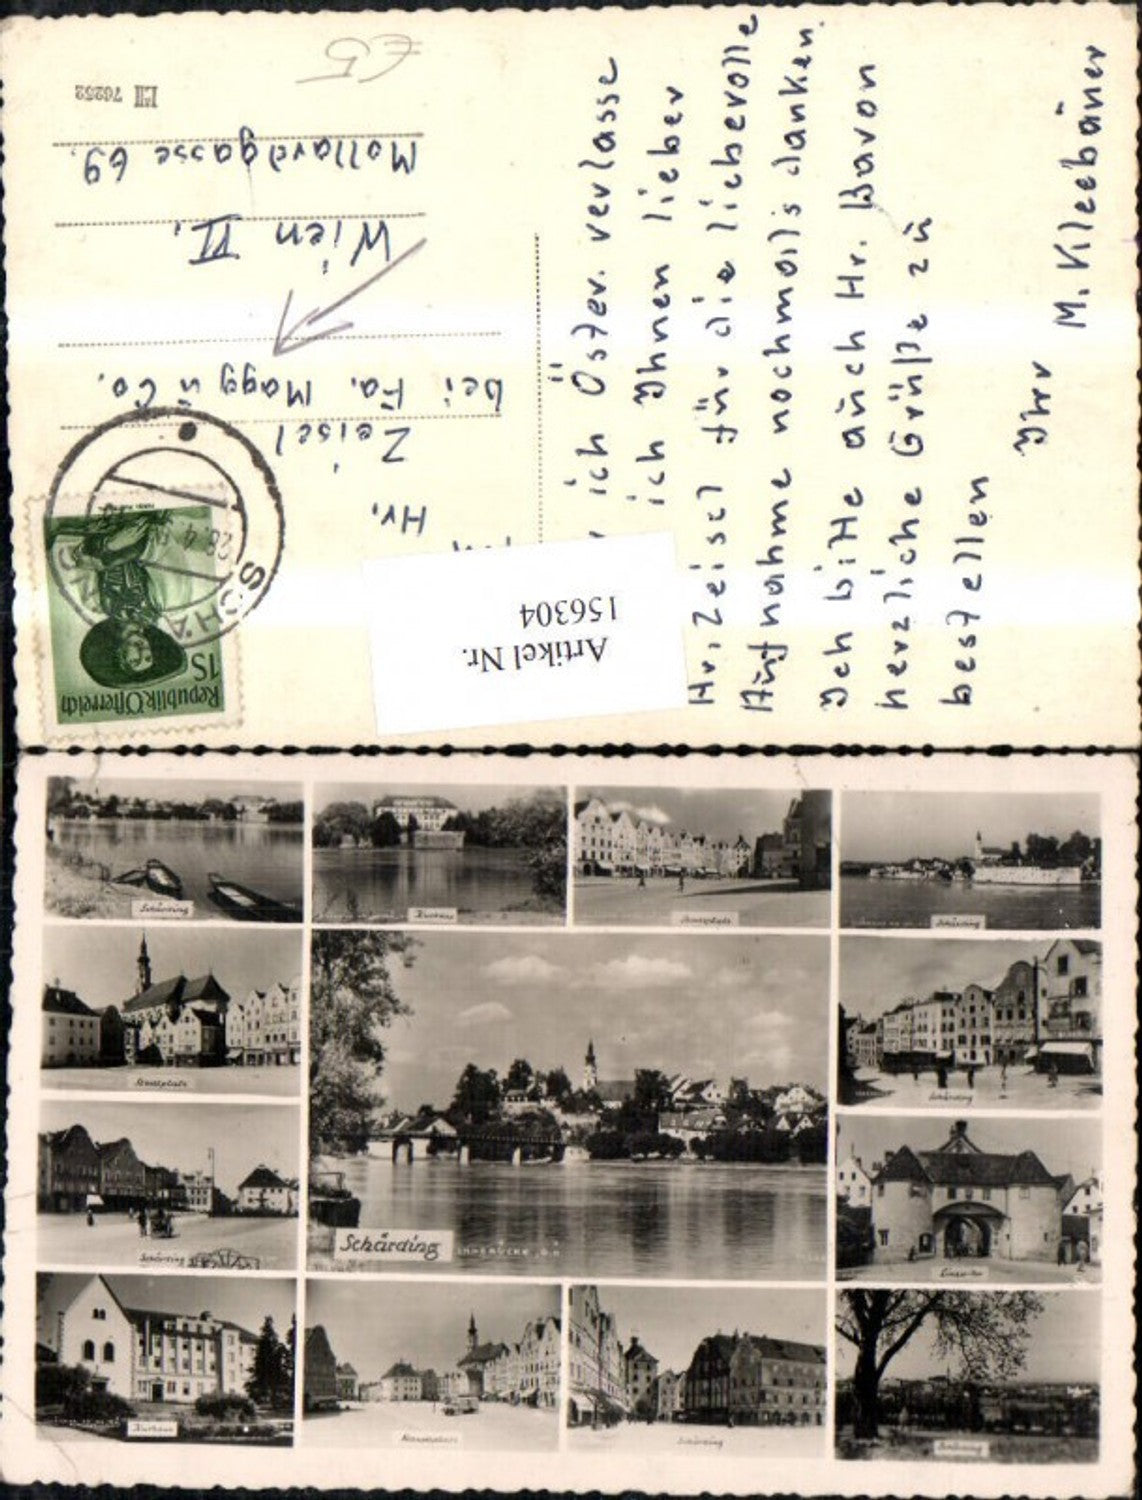 €5
76252
Hr.
Zeisel
bei Fa. Magg u Co.
Wien VI.
Mollardgasse 69.
Republik Österreich
1S
SCHÄ
28.4
Artikel Nr.
156304
ich Öster. verlasse
ich Ihnen lieber
Hr. Zeisel für die liebevolle
Aufnahme nochmals danken.
Ich bitte auch Hr. Baron
herzliche Grüße zu
bestellen
Ihr
M. Kleebauer
Schärding
Kurhaus
Stadtplatz
Schärding
Stadtplatz
Schärding
Schärding
Schärding
Linzertor
Kurhaus
Schärding
Schärding